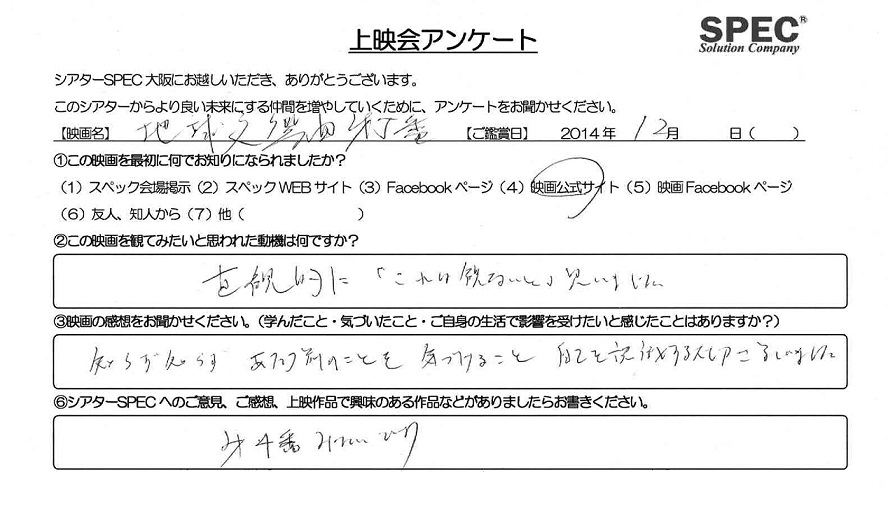 上映会アンケート
SPEC®
Solution Company
シアターSPEC大阪にお越しいただき、ありがとうございます。
このシアターからより良い未来にする仲間を増やしていくために、アンケートをお聞かせください。
【映画名】 地球交響曲 番 【ご鑑賞日】 2014年 12月 日( )
①この映画を最初に何でお知りになられましたか?
(1) スペック会場掲示 (2) スペックWEBサイト (3) Facebookページ (4) 映画公式サイト (5) 映画Facebookページ
(6) 友人、知人から (7) 他( )
②この映画を観てみたいと思われた動機は何ですか?
直観的に「これは観ないと」思いました
③映画の感想をお聞かせください。(学んだこと・気づいたこと・ご自身の生活で影響を受けたいと感じたことはありますか?)
知らず知らず あたり前のことを 気づけること
⑥シアターSPECへのご意見、ご感想、上映作品で興味のある作品などがありましたらお書きください。
4番 みたい